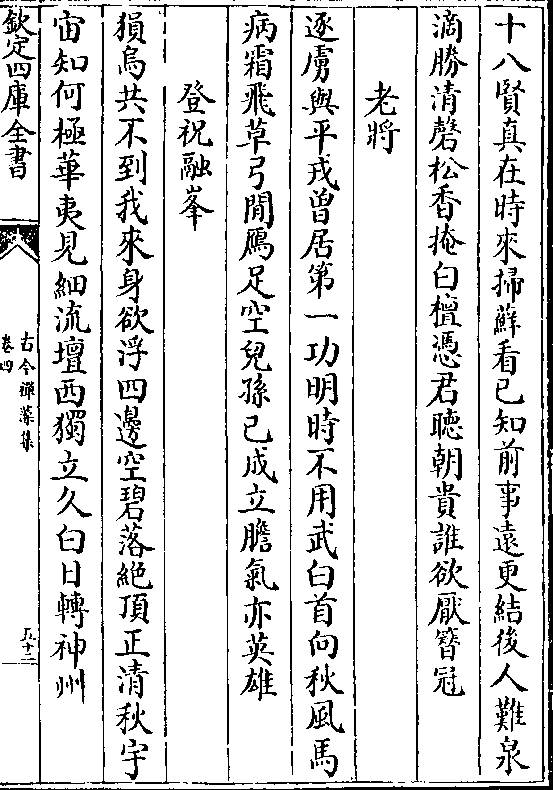 十八賢真在時來掃蘚看已知前事遠更結後人難泉
滴勝清磬松香掩白檀憑君聽朝貴誰欲厭簪冠
老將
逐虜與平戎曾居第一功明時不用武白首向秋風馬
病霜飛草弓閒鴈足空兒孫已成立膽氣亦英雄
登祝融峯
猨鳥共不到我來身欲浮四邊空碧落絶頂正清秋宇
宙知何極華夷見細流壇西獨立久白日轉神州
欽定四庫全書
古今禪藻集
卷四
五十二